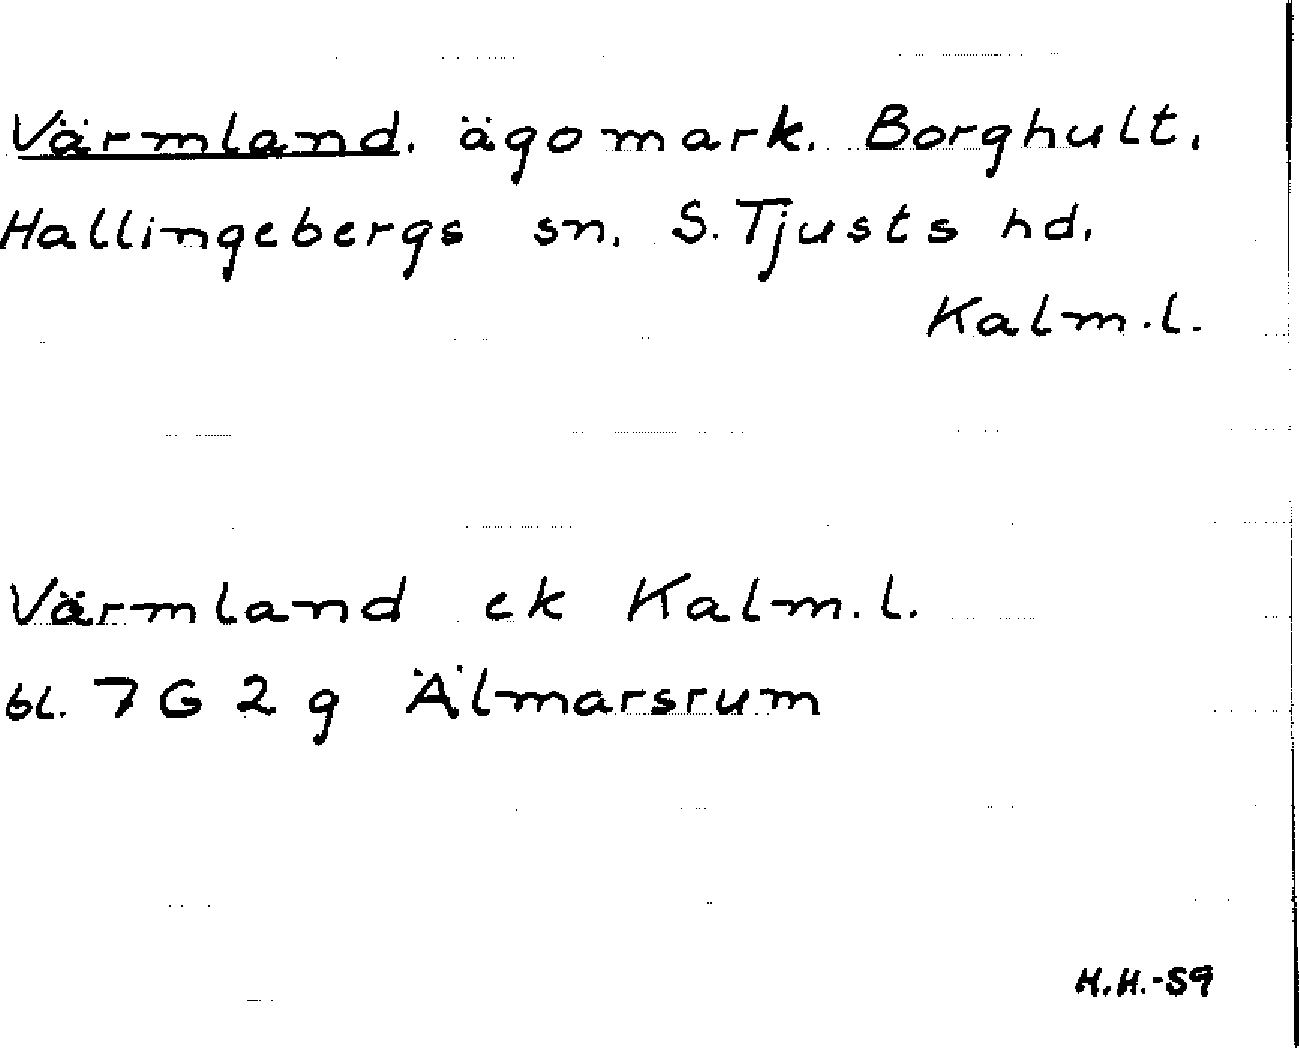 Värmland. ägomark. Borghult.
Hallingebergs sn. S. Tjusts hd.
Kalm.l.
Värmland ek Kalm.l.
bl. 7 G 2 g Älmarsrum
H.H.-59